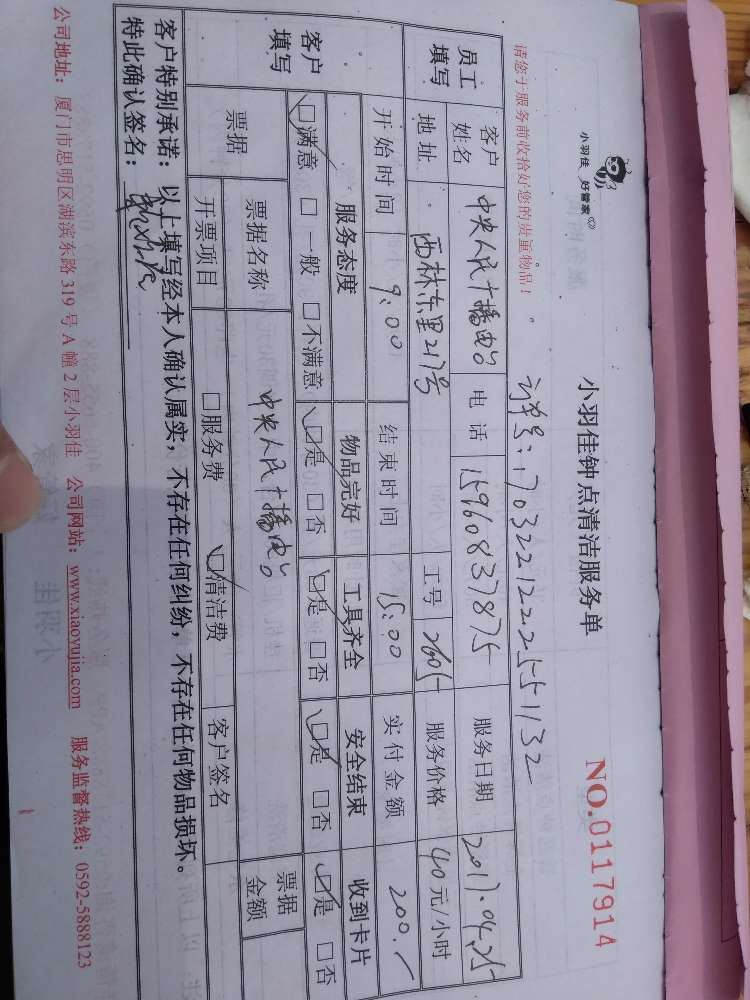 小羽佳 好管家
小羽佳钟点清洁服务单
NO.0117914
请您于服务前收拾好您的贵重物品!
订单号:1703221222551132
员工填写 客户姓名 中央人民广播电台 电话 15960837875 服务日期 2017.04.25
地址 西林东里217号 工号 2605 服务价格 40元/小时
客户填写 开始时间 9:00 结束时间 15:00 实付金额 200.
服务态度 物品完好 工具齐全 安全结束 收到卡片
☑满意 □一般 □不满意 ☑是 □否 ☑是 □否 ☑是 □否 ☑是 □否
票据 票据名称 中央人民广播电台 票据金额
开票项目 □服务费 ☑清洁费 客户签名
客户特别承诺:以上填写经本人确认属实,不存在任何纠纷,不存在任何物品损坏。
特此确认签名:
公司地址:厦门市思明区湖滨东路 319 号 A 幢 2 层小羽佳 公司网站:www.xiaoyujia.com 服务监督热线:0592-5888123